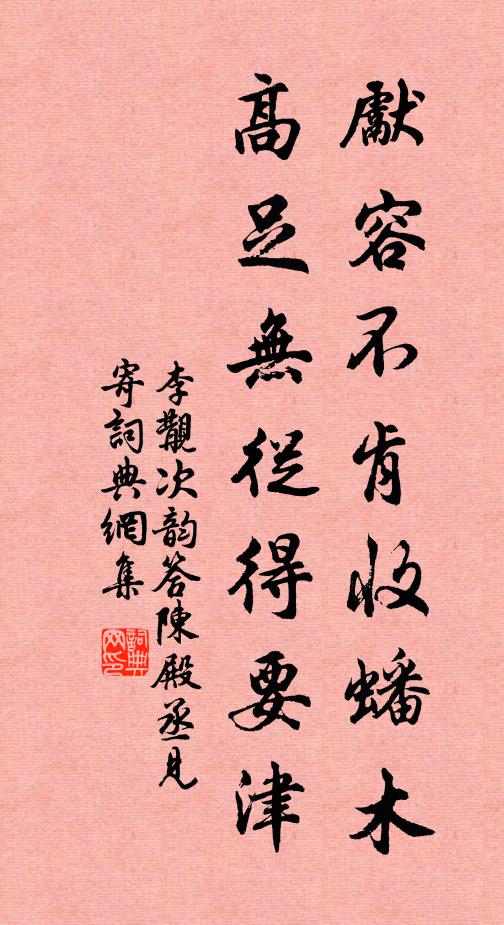 獻容不肯收蟠木
高足無從得要津
李觀次韵答陳殿丞見
寄詞典網集
詞典网印